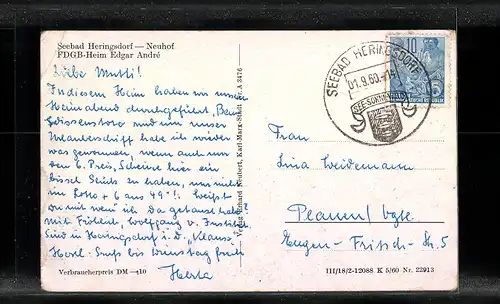 Seebad Heringsdorf — Neuhof
FDGB-Heim Edgar André
Liebe Mutti!
In diesem Heim haben wir unsern
Heimabend durchgeführt. Beim
und um unser
haben ich wieder
was gewonnen, wenn auch nur
den 6. Preis. Scheine hier ein
bissel Glück zu haben, uns nicht
im Lotto + 6 aus 49"! Weißt
Du mit wem ich da getanzt habe
mit Fröhlich, Wolfgang v. Institut.
Sind in Heringsdorf i. d. "Klause"
Herzl. Gruß bis Dienstag früh
Herta
Verbraucherpreis DM —,10
Verlag Erhard Neubert, Karl-Marx-Stadt Nr. A 3476
SEEBAD HERINGSDORF
01.9.60.-14
10
Frau
Lina Weidemann
Plauen / Vgtl.
Eugen-Fritsch-Str. 5
III/18/2-12088 K 5/60 Nr. 22913